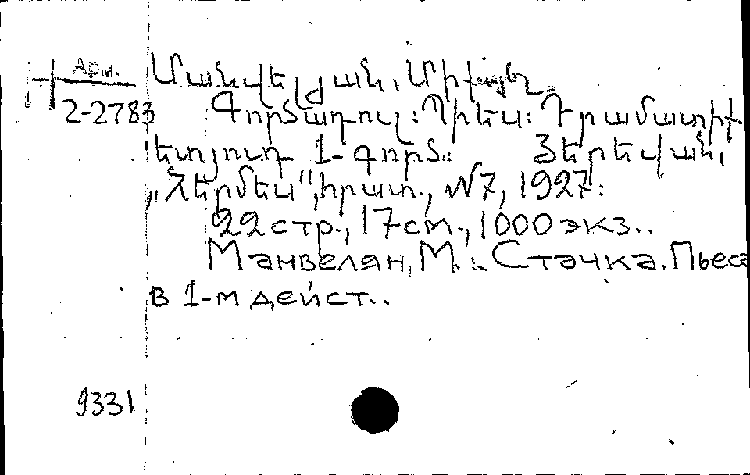 Арм.
2-2783
Մանվելյան, Միքայել
Գործադուլ: Պիես: Դրամատիկ
1- գործ.:
Յերեվան,
„Հերմես“, հրատ., №7, 1927:
22 стр., 17см., 1000 экз..
Манвелян, М. :. Стачка. Пьеса
в 1-м дейст..
9331